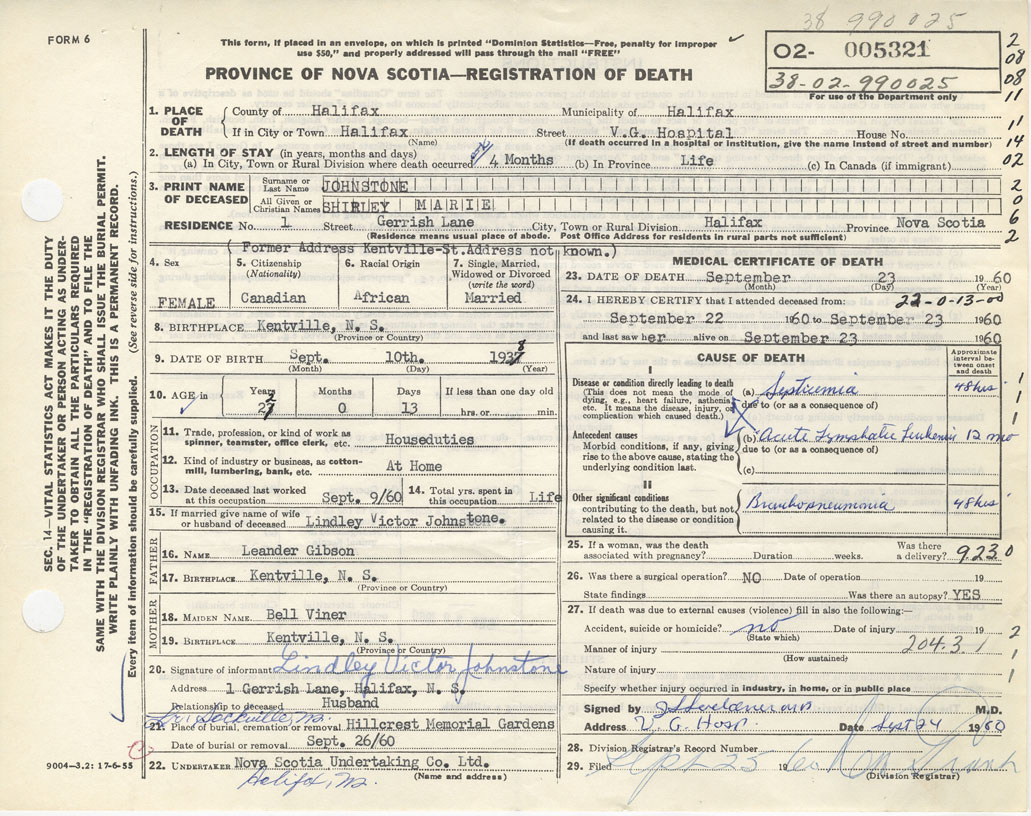 38 990025
FORM 6
This form, if placed in an envelope, on which is printed "Dominion Statistics—Free, penalty for improper
use $50," and properly addressed will pass through the mail "FREE"
O2- 005321
38-02-990025
For use of the Department only
PROVINCE OF NOVA SCOTIA—REGISTRATION OF DEATH
2
08
08
11
11
14
02
2
0
6
2
1. PLACE OF DEATH
County of Halifax Municipality of Halifax
If in City or Town Halifax Street V.G. Hospital House No.
(Name) (If death occurred in a hospital or institution, give the name instead of street and number)
2. LENGTH OF STAY (in years, months and days)
(a) In City, Town or Rural Division where death occurred 4 Months (b) In Province Life (c) In Canada (if immigrant)
3. PRINT NAME OF DECEASED
Surname or Last Name JOHNSTONE
All Given or Christian Names SHIRLEY MARIE
RESIDENCE No. 1 Street Gerrish Lane City, Town or Rural Division Halifax Province Nova Scotia
(Residence means usual place of abode. Post Office Address for residents in rural parts not sufficient)
( Former Address Kentville-St.Address not known.)
4. Sex FEMALE
5. Citizenship (Nationality) Canadian
6. Racial Origin African
7. Single, Married, Widowed or Divorced (write the word) Married
8. BIRTHPLACE Kentville, N. S.
(Province or Country)
9. DATE OF BIRTH Sept. 10th. 1938
(Month) (Day) (Year)
10. AGE in Years 22 Months 0 Days 13 If less than one day old hrs. or min.
OCCUPATION
11. Trade, profession, or kind of work as spinner, teamster, office clerk, etc. Houseduties
12. Kind of industry or business, as cotton-mill, lumbering, bank, etc. At Home
13. Date deceased last worked at this occupation Sept. 9/60 14. Total yrs. spent in this occupation Life
15. If married give name of wife or husband of deceased Lindley Victor Johnstone.
FATHER
16. NAME Leander Gibson
17. BIRTHPLACE Kentville, N. S.
(Province or Country)
MOTHER
18. MAIDEN NAME Bell Viner
19. BIRTHPLACE Kentville, N. S.
(Province or Country)
20. Signature of informant Lindley Victor Johnstone
Address 1 Gerrish Lane, Halifax, N. S.
Relationship to deceased Husband
Sackville, N.S.
21. Place of burial, cremation or removal Hillcrest Memorial Gardens
Date of burial or removal Sept. 26/60
22. UNDERTAKER Nova Scotia Undertaking Co. Ltd.
(Name and address)
Halifax, N.S.
MEDICAL CERTIFICATE OF DEATH
23. DATE OF DEATH September 23 1960
(Month) (Day) (Year)
24. I HEREBY CERTIFY that I attended deceased from: 22-0-13-00
September 22 1960 to September 23 1960
and last saw her alive on September 23 1960
CAUSE OF DEATH
Approximate interval between onset and death
I
Disease or condition directly leading to death
(This does not mean the mode of dying, e.g., heart failure, asthenia, etc. It means the disease, injury, or complication which caused death.)
(a) Septicemia 48 hrs
due to (or as a consequence of)
Antecedent causes
Morbid conditions, if any, giving rise to the above cause, stating the underlying condition last.
(b) Acute Lymphatic Leukemia 12 mo
due to (or as a consequence of)
(c)
II
Other significant conditions
contributing to the death, but not related to the disease or condition causing it.
Bronchopneumonia 48 hrs
1
1
1
25. If a woman, was the death associated with pregnancy? Duration weeks. Was there a delivery? 9230
26. Was there a surgical operation? NO Date of operation 19
State findings Was there an autopsy? YES
27. If death was due to external causes (violence) fill in also the following:—
Accident, suicide or homicide? no Date of injury 19
(State which)
Manner of injury 204.3 1
(How sustained)
Nature of injury
Specify whether injury occurred in industry, in home, or in public place
2
1
1
Signed by M.D.
Address V. G. Hosp. Date Sept 24 1960
28. Division Registrar's Record Number
29. Filed Sept 23 1960
(Division Registrar)
SEC. 14—VITAL STATISTICS ACT MAKES IT THE DUTY
OF THE UNDERTAKER OR PERSON ACTING AS UNDER-
TAKER TO OBTAIN ALL THE PARTICULARS REQUIRED
IN THE "REGISTRATION OF DEATH" AND TO FILE THE
SAME WITH THE DIVISION REGISTRAR WHO SHALL ISSUE THE BURIAL PERMIT.
WRITE PLAINLY WITH UNFADING INK. THIS IS A PERMANENT RECORD.
Every item of information should be carefully supplied. (See reverse side for instructions.)
9004—3.2: 17-6-55